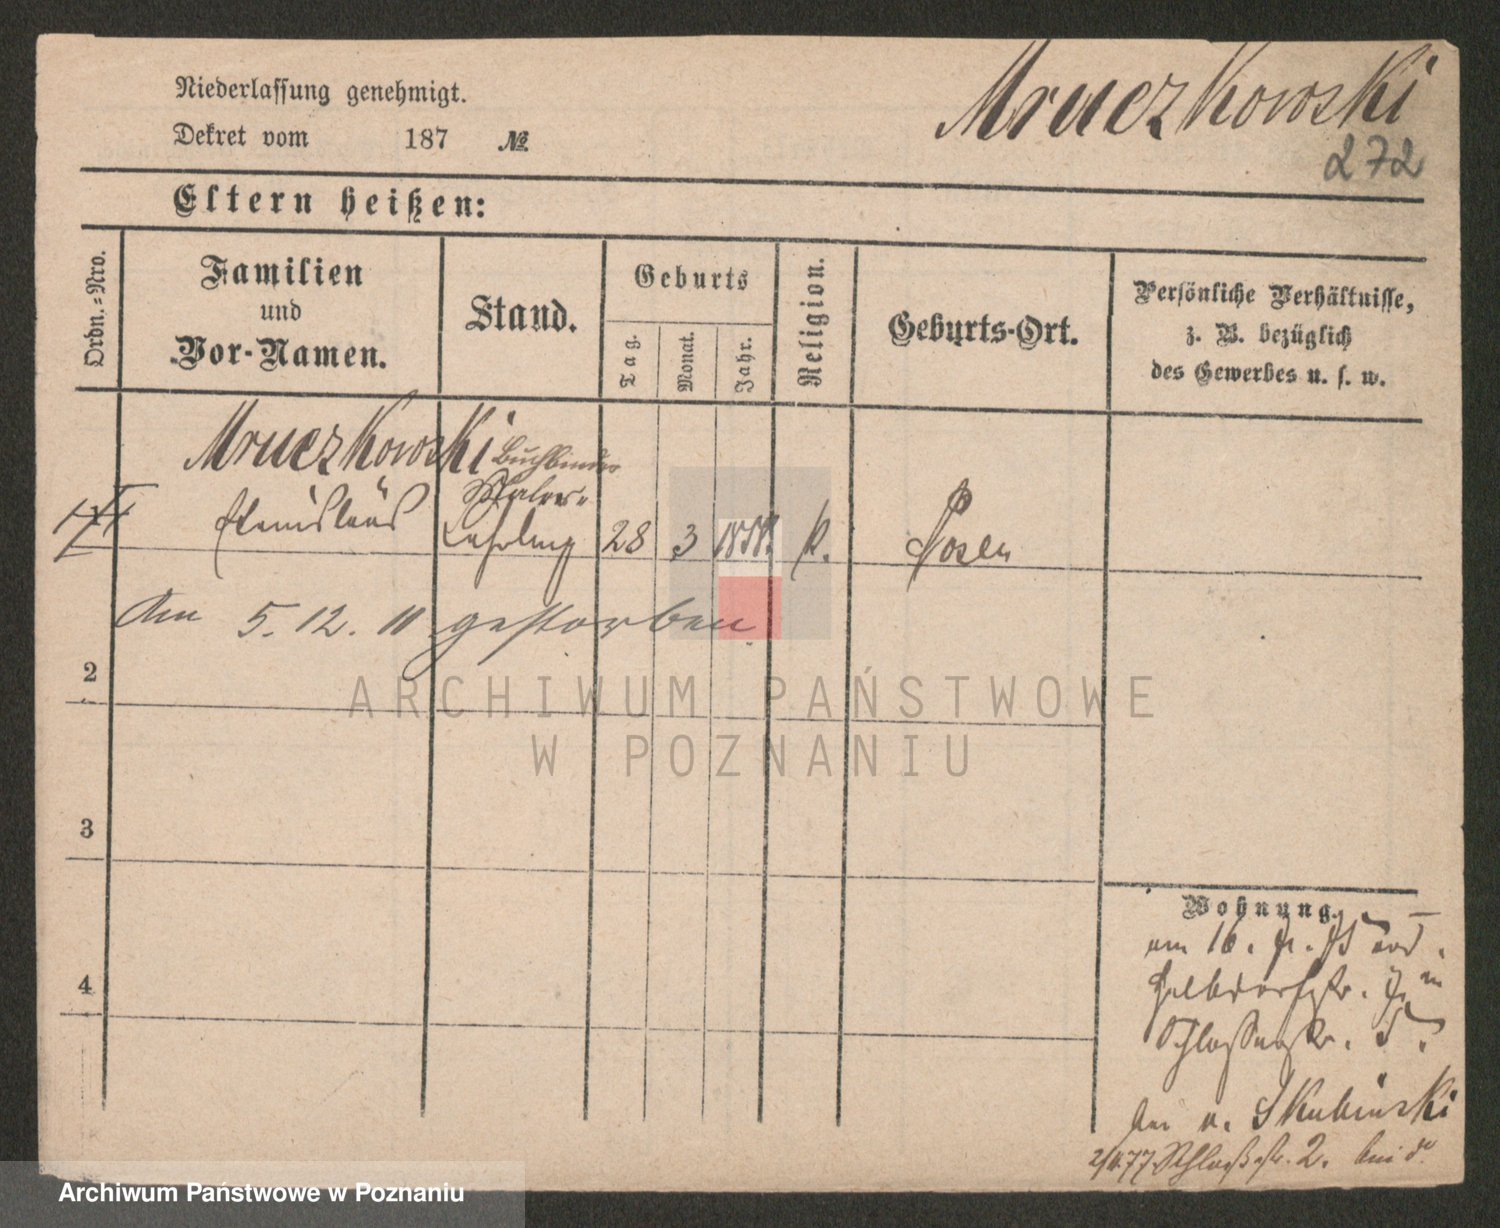 Niederlassung genehmigt.
Mruczkowski
Dekret vom 187 №
272
Eltern heißen:
Ordn.-Nro.
Familien
und
Vor-Namen.
Stand.
Geburts
Tag.
Monat.
Jahr.
Religion.
Geburts-Ort.
Persönliche Verhältnisse,
z. B. bezüglich
des Gewerbes u. s. w.
Mruczkowski Buchbinder
Maler-
Stanislaus Lehrling 28 3 K. Posen
Am 5. 12. 11 gestorben.
2
ARCHIWUM PAŃSTWOWE
W POZNANIU
3
4
Wohnung.
am 16.
Halbdorfstr. 7.
Schlosserstr. 5.
bei v. Skubinski
77 Schloßstr. 2. bei do
Archiwum Państwowe w Poznaniu